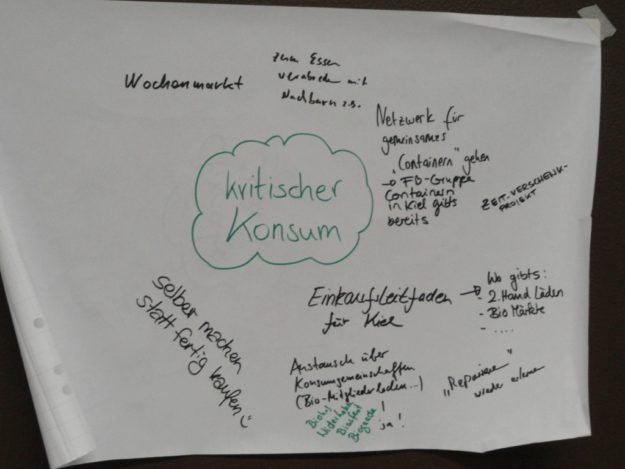 Wochenmarkt
zum Essen
verabreden mit
Nachbarn z.B.
Netzwerk für
gemeinsames
"Containern" gehen
→ FB-Gruppe
Containern
in Kiel gibts
bereits
ZEIT-VERSCHENK-
PROJEKT
kritischer
Konsum
selber machen
statt fertig kaufen
Einkaufsleitfaden
für Kiel
→ Wo gibts:
- 2. Hand Läden
- Bio Märkte
- ....
Austausch über
Konsumgemeinschaften
(Bio-Mitgliederladen...)
! ja!
"Reparieren"
wieder